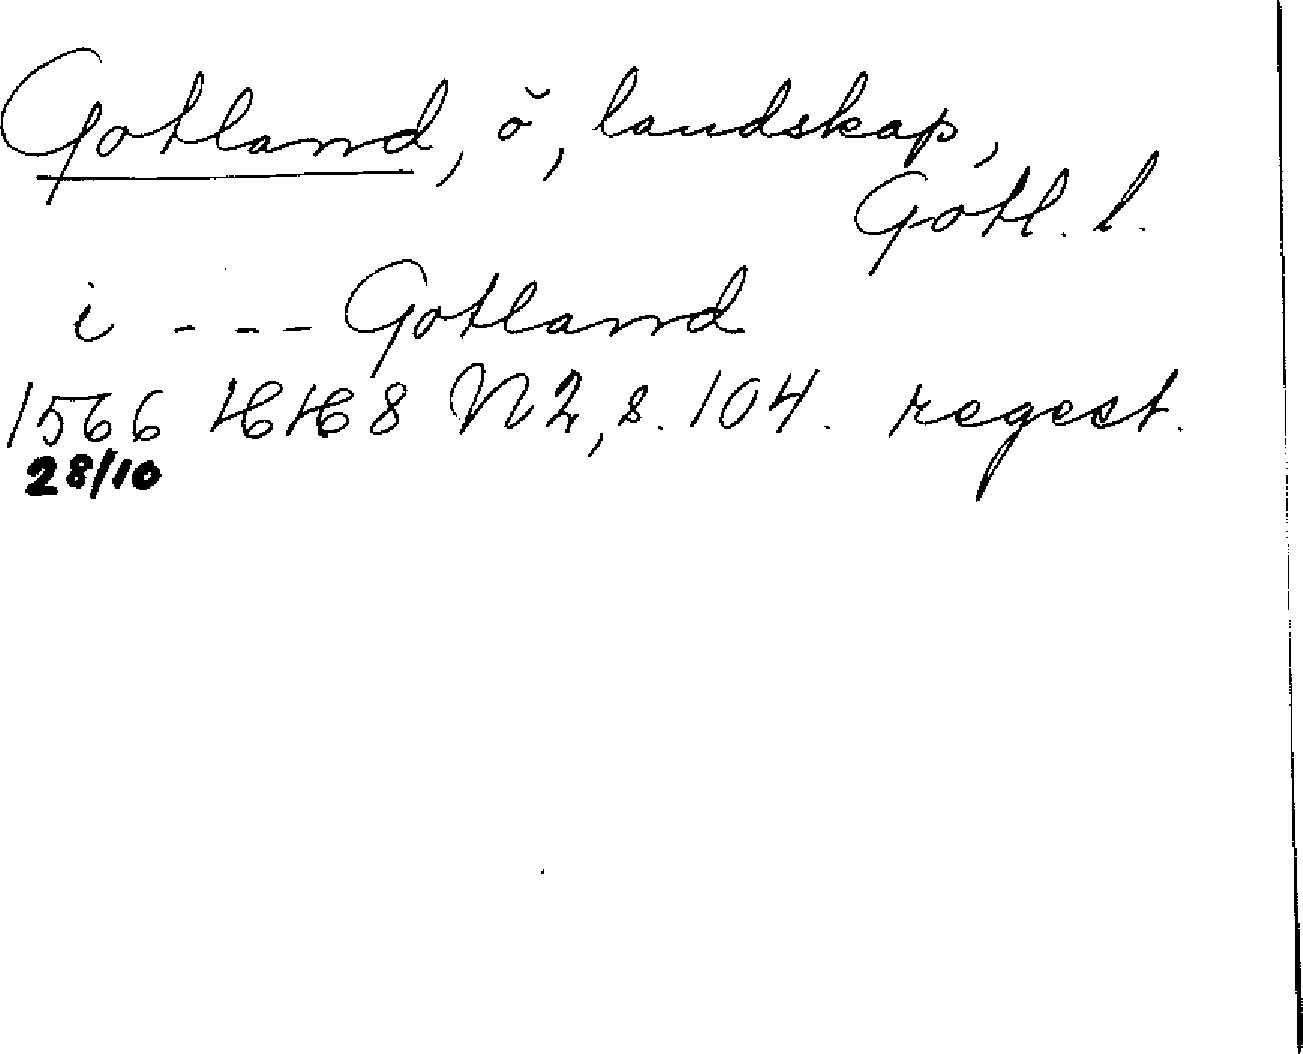 Gotland, ö, landskap,
Gotl. l.
i --- Gotland
1566 HH 8 N2, s. 104. regest.
28/10